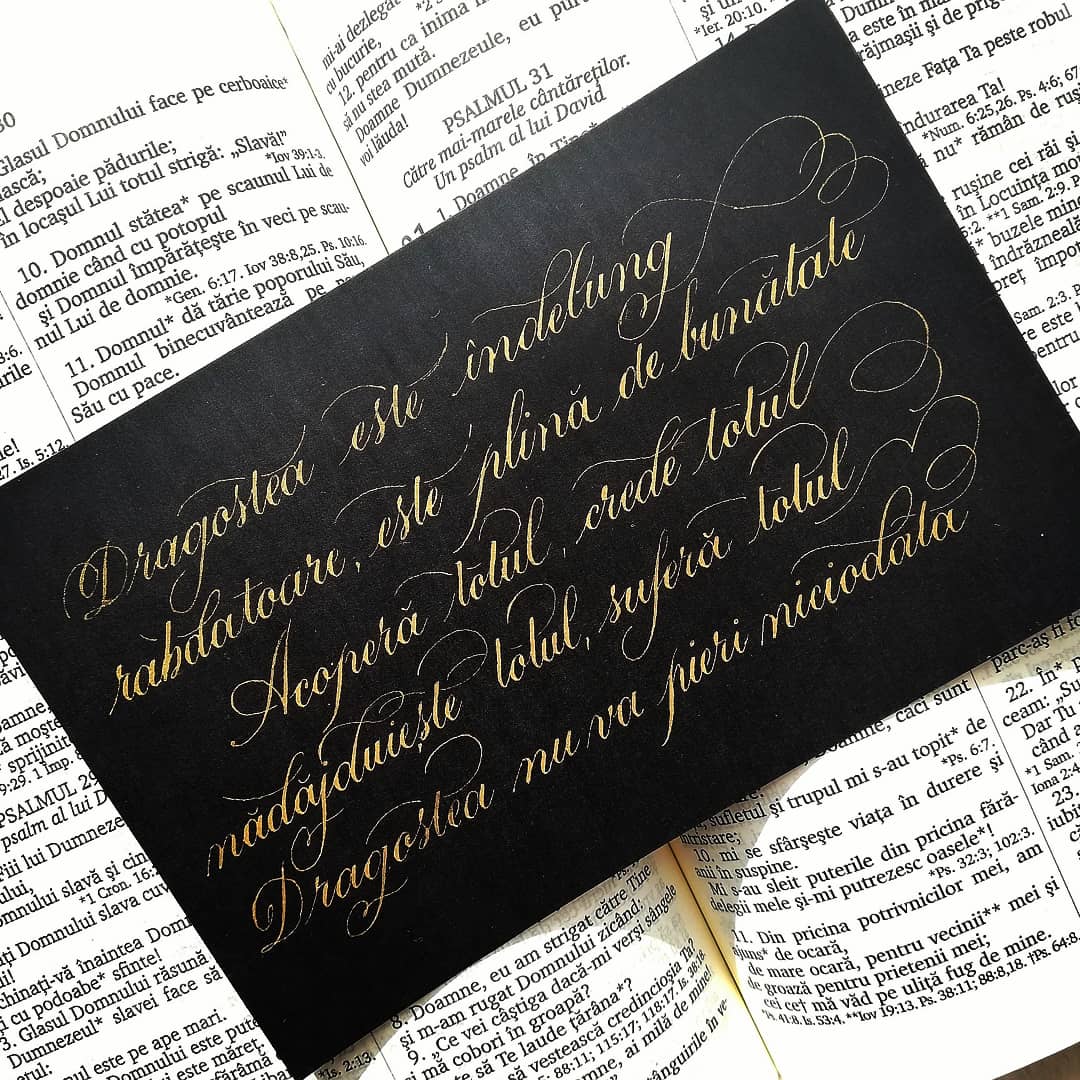 30
Glasul Domnului face pe cerboaice*
despoaie pădurile;
în locaşul Lui totul strigă: „Slavă!”
*Iov 39:1-3.
10. Domnul stătea* pe scaunul Lui de
domnie când cu potopul
şi Domnul împărăţeşte în veci pe scau-
nul Lui de domnie.
*Gen. 6:17. Iov 38:8,25. Ps. 10:16.
11. Domnul* dă tărie poporului Său,
Domnul binecuvântează pe
Său cu pace.
mi-ai dezlegat
cu bucurie,
12. pentru ca inima
să nu stea mută.
Doamne Dumnezeule, eu
voi lăuda!
PSALMUL 31
Către mai-marele cântăreţilor.
Un psalm al lui David
1. Doamne, în Tine*
*Ier. 20:10.
Faţa Ta peste robul
îndurarea Ta!
*Num. 6:25,26. Ps. 4:6; 67
nu* rămân de
ruşine cei răi şi
în Locuinţa
**1 Sam. 2:9.
** buzele
îndrăzneală
Dragostea este îndelung
răbdatoare, este plină de bunătate
Acoperă totul, crede totul
nădăjduiește totul, suferă totul
Dragostea nu va pieri niciodata
PSALMUL 29
psalm al lui David
fiii lui Dumnezeu
Domnului slavă şi
*1 Cron. 16:
Domnului slava
înaintea
podoabe* sfinte!
3. Glasul Domnului răsună
Dumnezeul* slavei face să
pe ape mari.
8. Doamne, eu am strigat către Tine
şi m-am rugat Domnului zicând:
9. „Ce vei câştiga dacă-mi verşi sângele
să mă cobori în groapă?
să Te laude ţărâna*?
să vestească credincioşia Ta?
*Is. 38:
ai milă de mine!
căci sunt
sufletul şi trupul mi s-au topit* de
întristare;
*Ps. 6:7.
10. mi se sfârşeşte viaţa în durere şi
anii în suspine.
Mi s-au sleit puterile din pricina fără-
delegii mele şi-mi putrezesc oasele*!
*Ps. 32:3; 102:3.
11. Din pricina potrivnicilor mei, am
ajuns* de ocară,
de mare ocară, pentru vecinii** mei şi
de groază pentru prietenii mei;
cei ce† mă văd pe uliţă fug de mine.
*Ps. 41:8. Is. 53:4. **Iov 19:13. Ps. 38:11; 88:8,18. †Ps. 64:8.
22. În*
ceam:
Dar Tu
când
*1 Sam.
Iona 2:4
23.